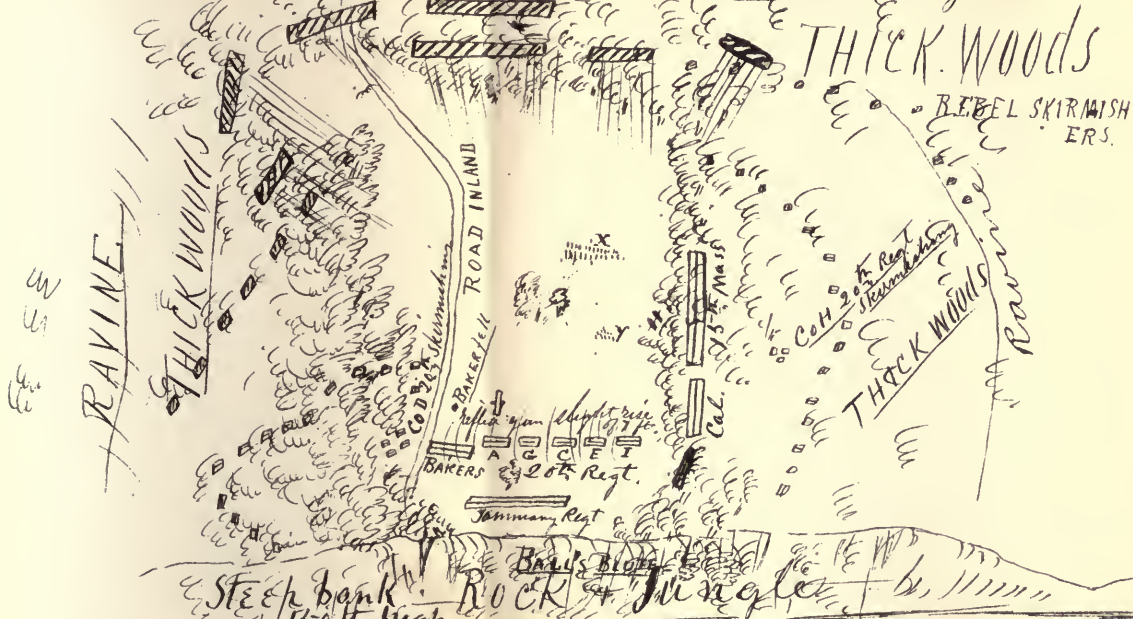 THICK. WOOdS
REBEL SKIRMISH
ERS.
RAVINE
THICK WOODS
ROAD INLAND
X
15th Mass
CoH 20th Regt
Skirmishing
THICK WOODS
Ravine
Y
H
Co D 20th Skirmishing
BAKER fell
Cal.
gun slight rise
of 7 ft.
A G C E I
BAKERS
20th Regt.
Tammany Regt
BALL'S BLUFF
Steep bank. ROCK + Jungle